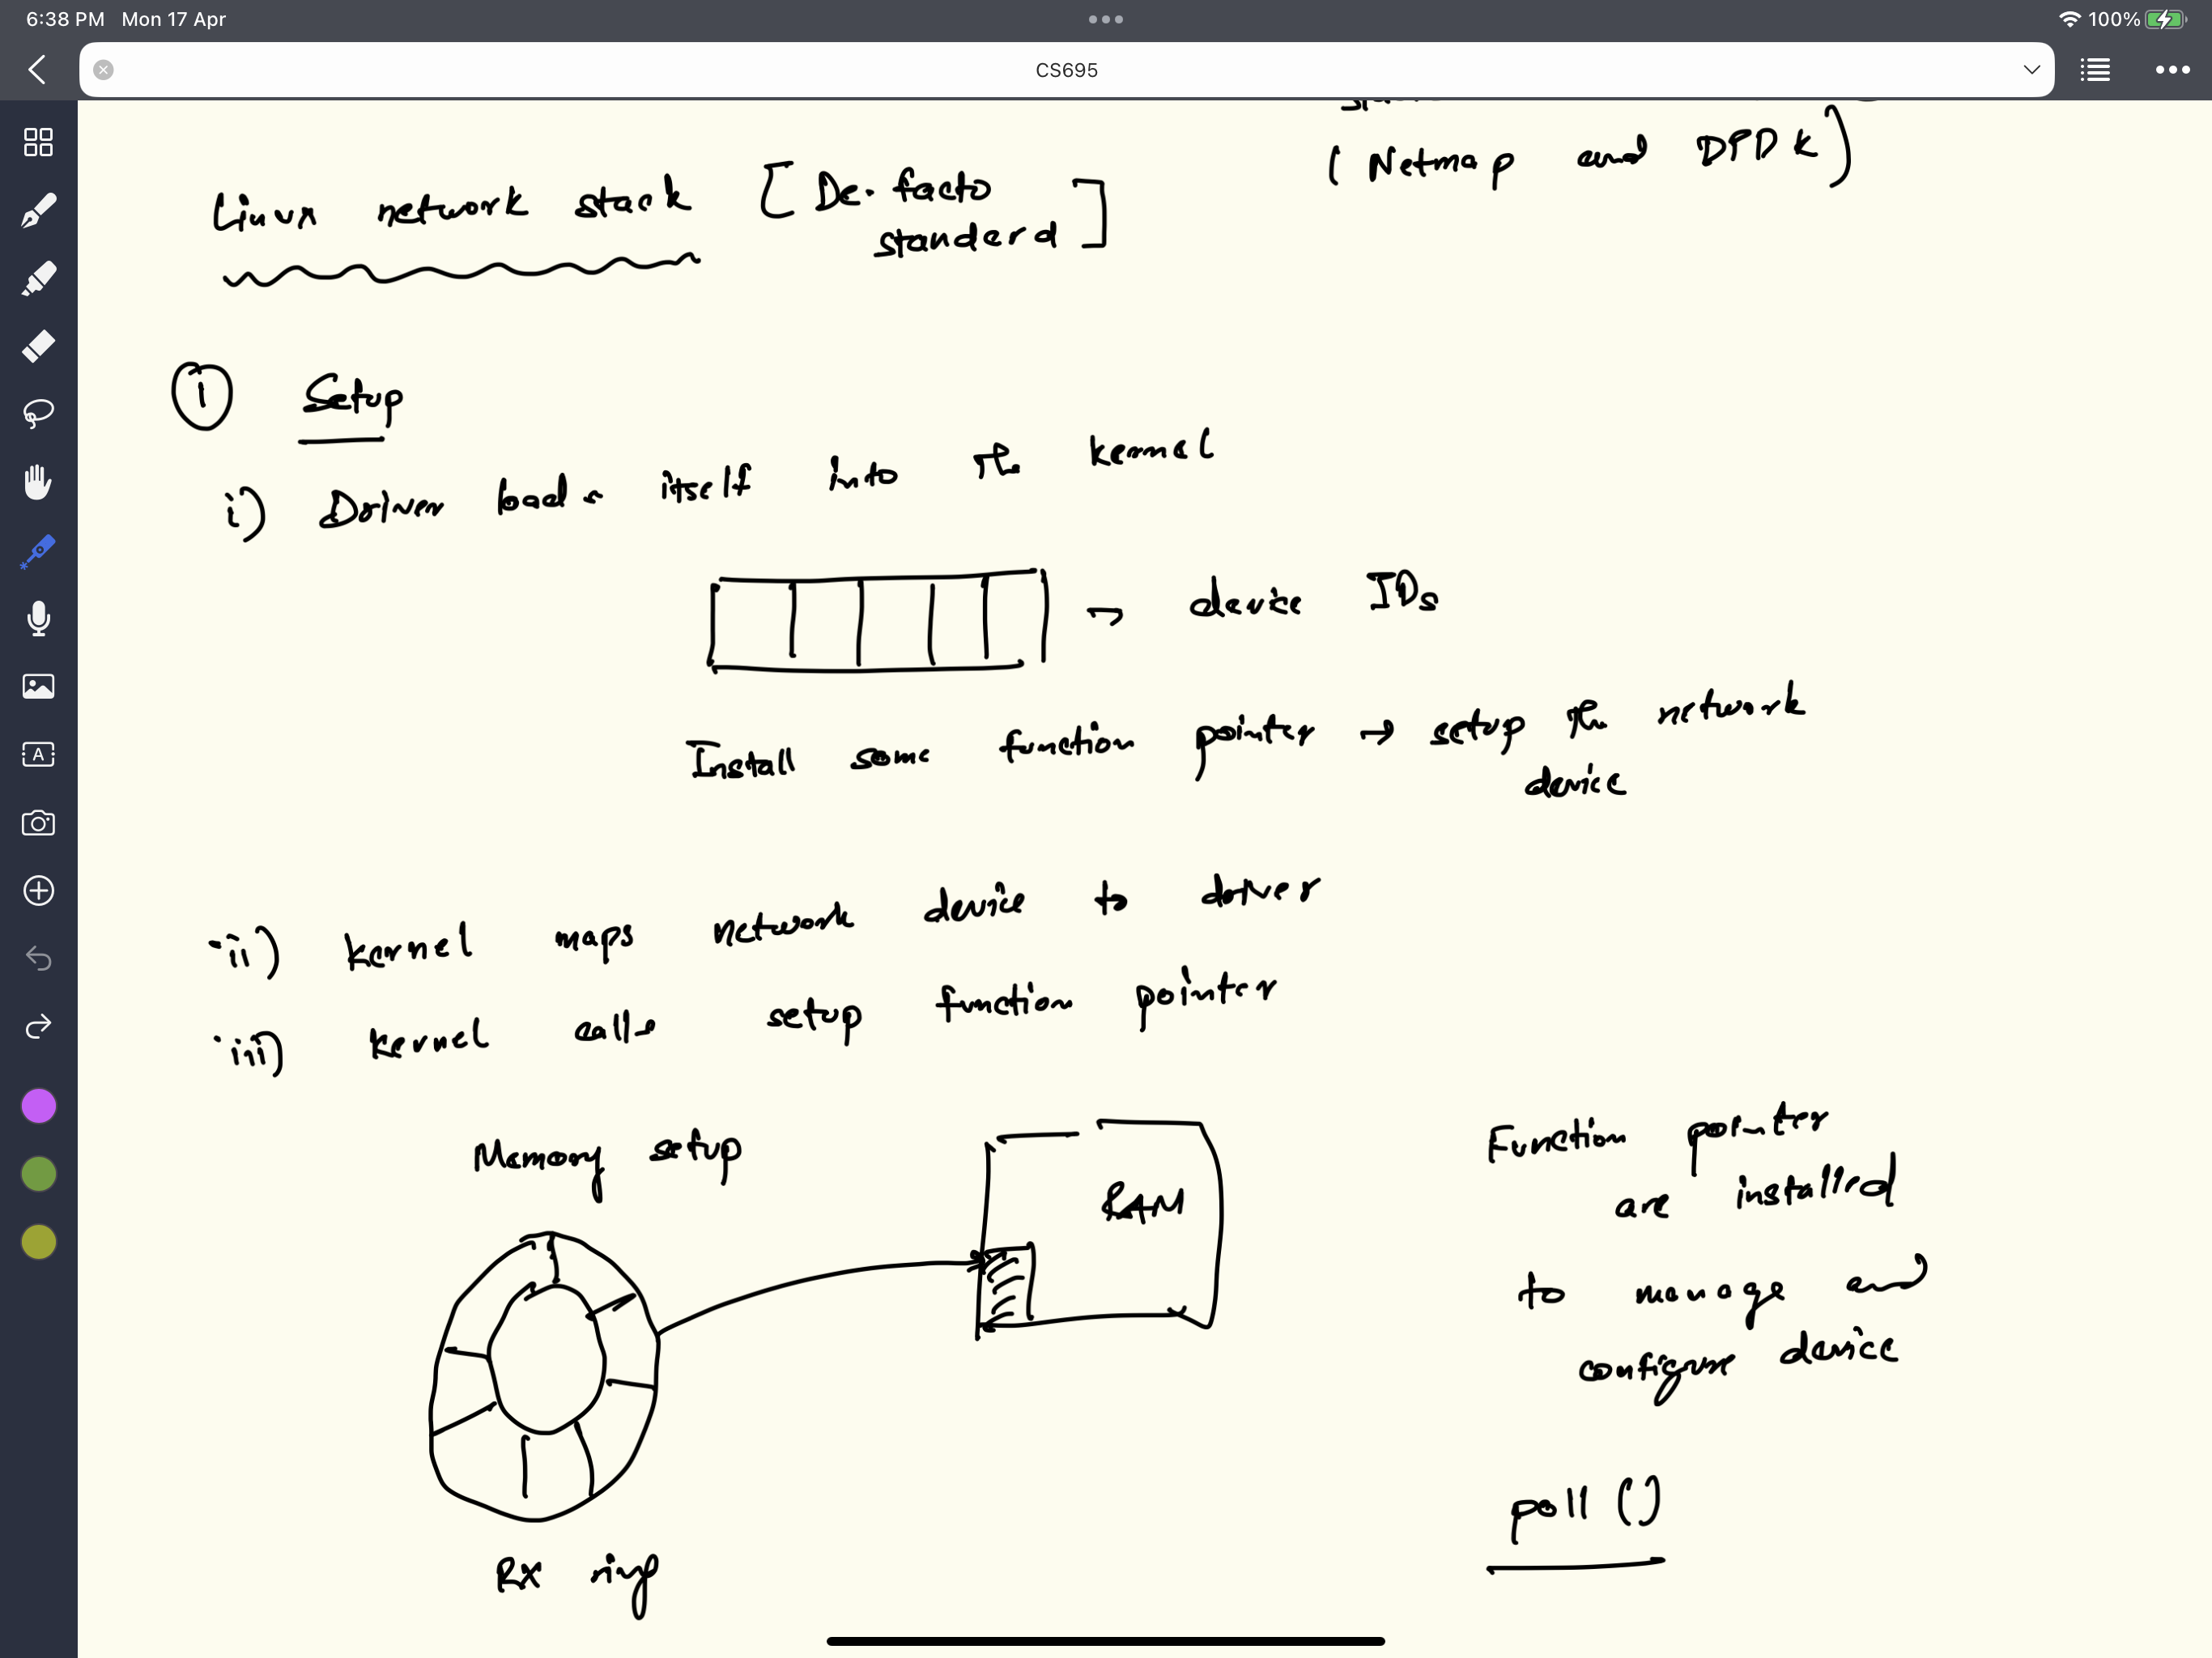 6:38 PM Mon 17 Apr
100%
CS695
(Netmap and DPDK)
Linux network stack [De-facto
standard]
1 Setup
i) Driver loads itself into the kernel
device IDs
Install some function pointer → setup the network
device
ii) kernel maps network device to driver
iii) kernel calls setup function pointer
Memory setup
RAM
Function pointer
are installed
to manage and
configure device
poll ()
Rx ring